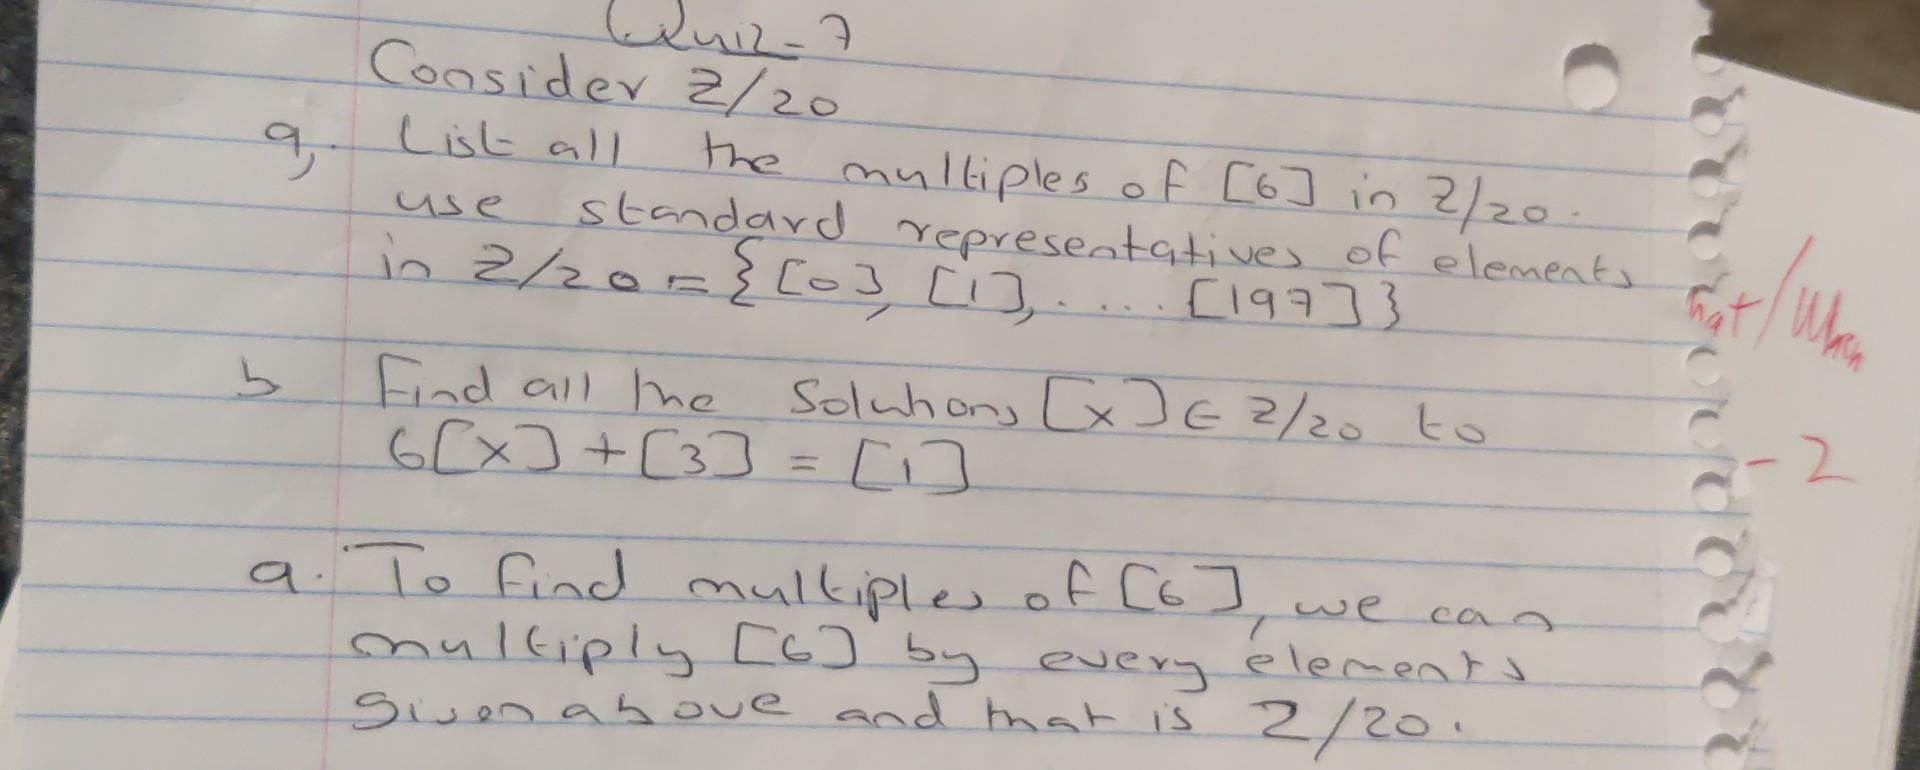 Quiz-7
Consider Z/20
a,. List all the multiples of [6] in Z/20.
use standard representatives of elements
in Z/20 = {[0], [1], .... [197]}
b Find all the Solutions [x] ∈ Z/20 to
6[x] + [3] = [1]
a. To find multiples of [6], we can
multiply [6] by every elements
given above and that is Z/20.
hat/When
-2